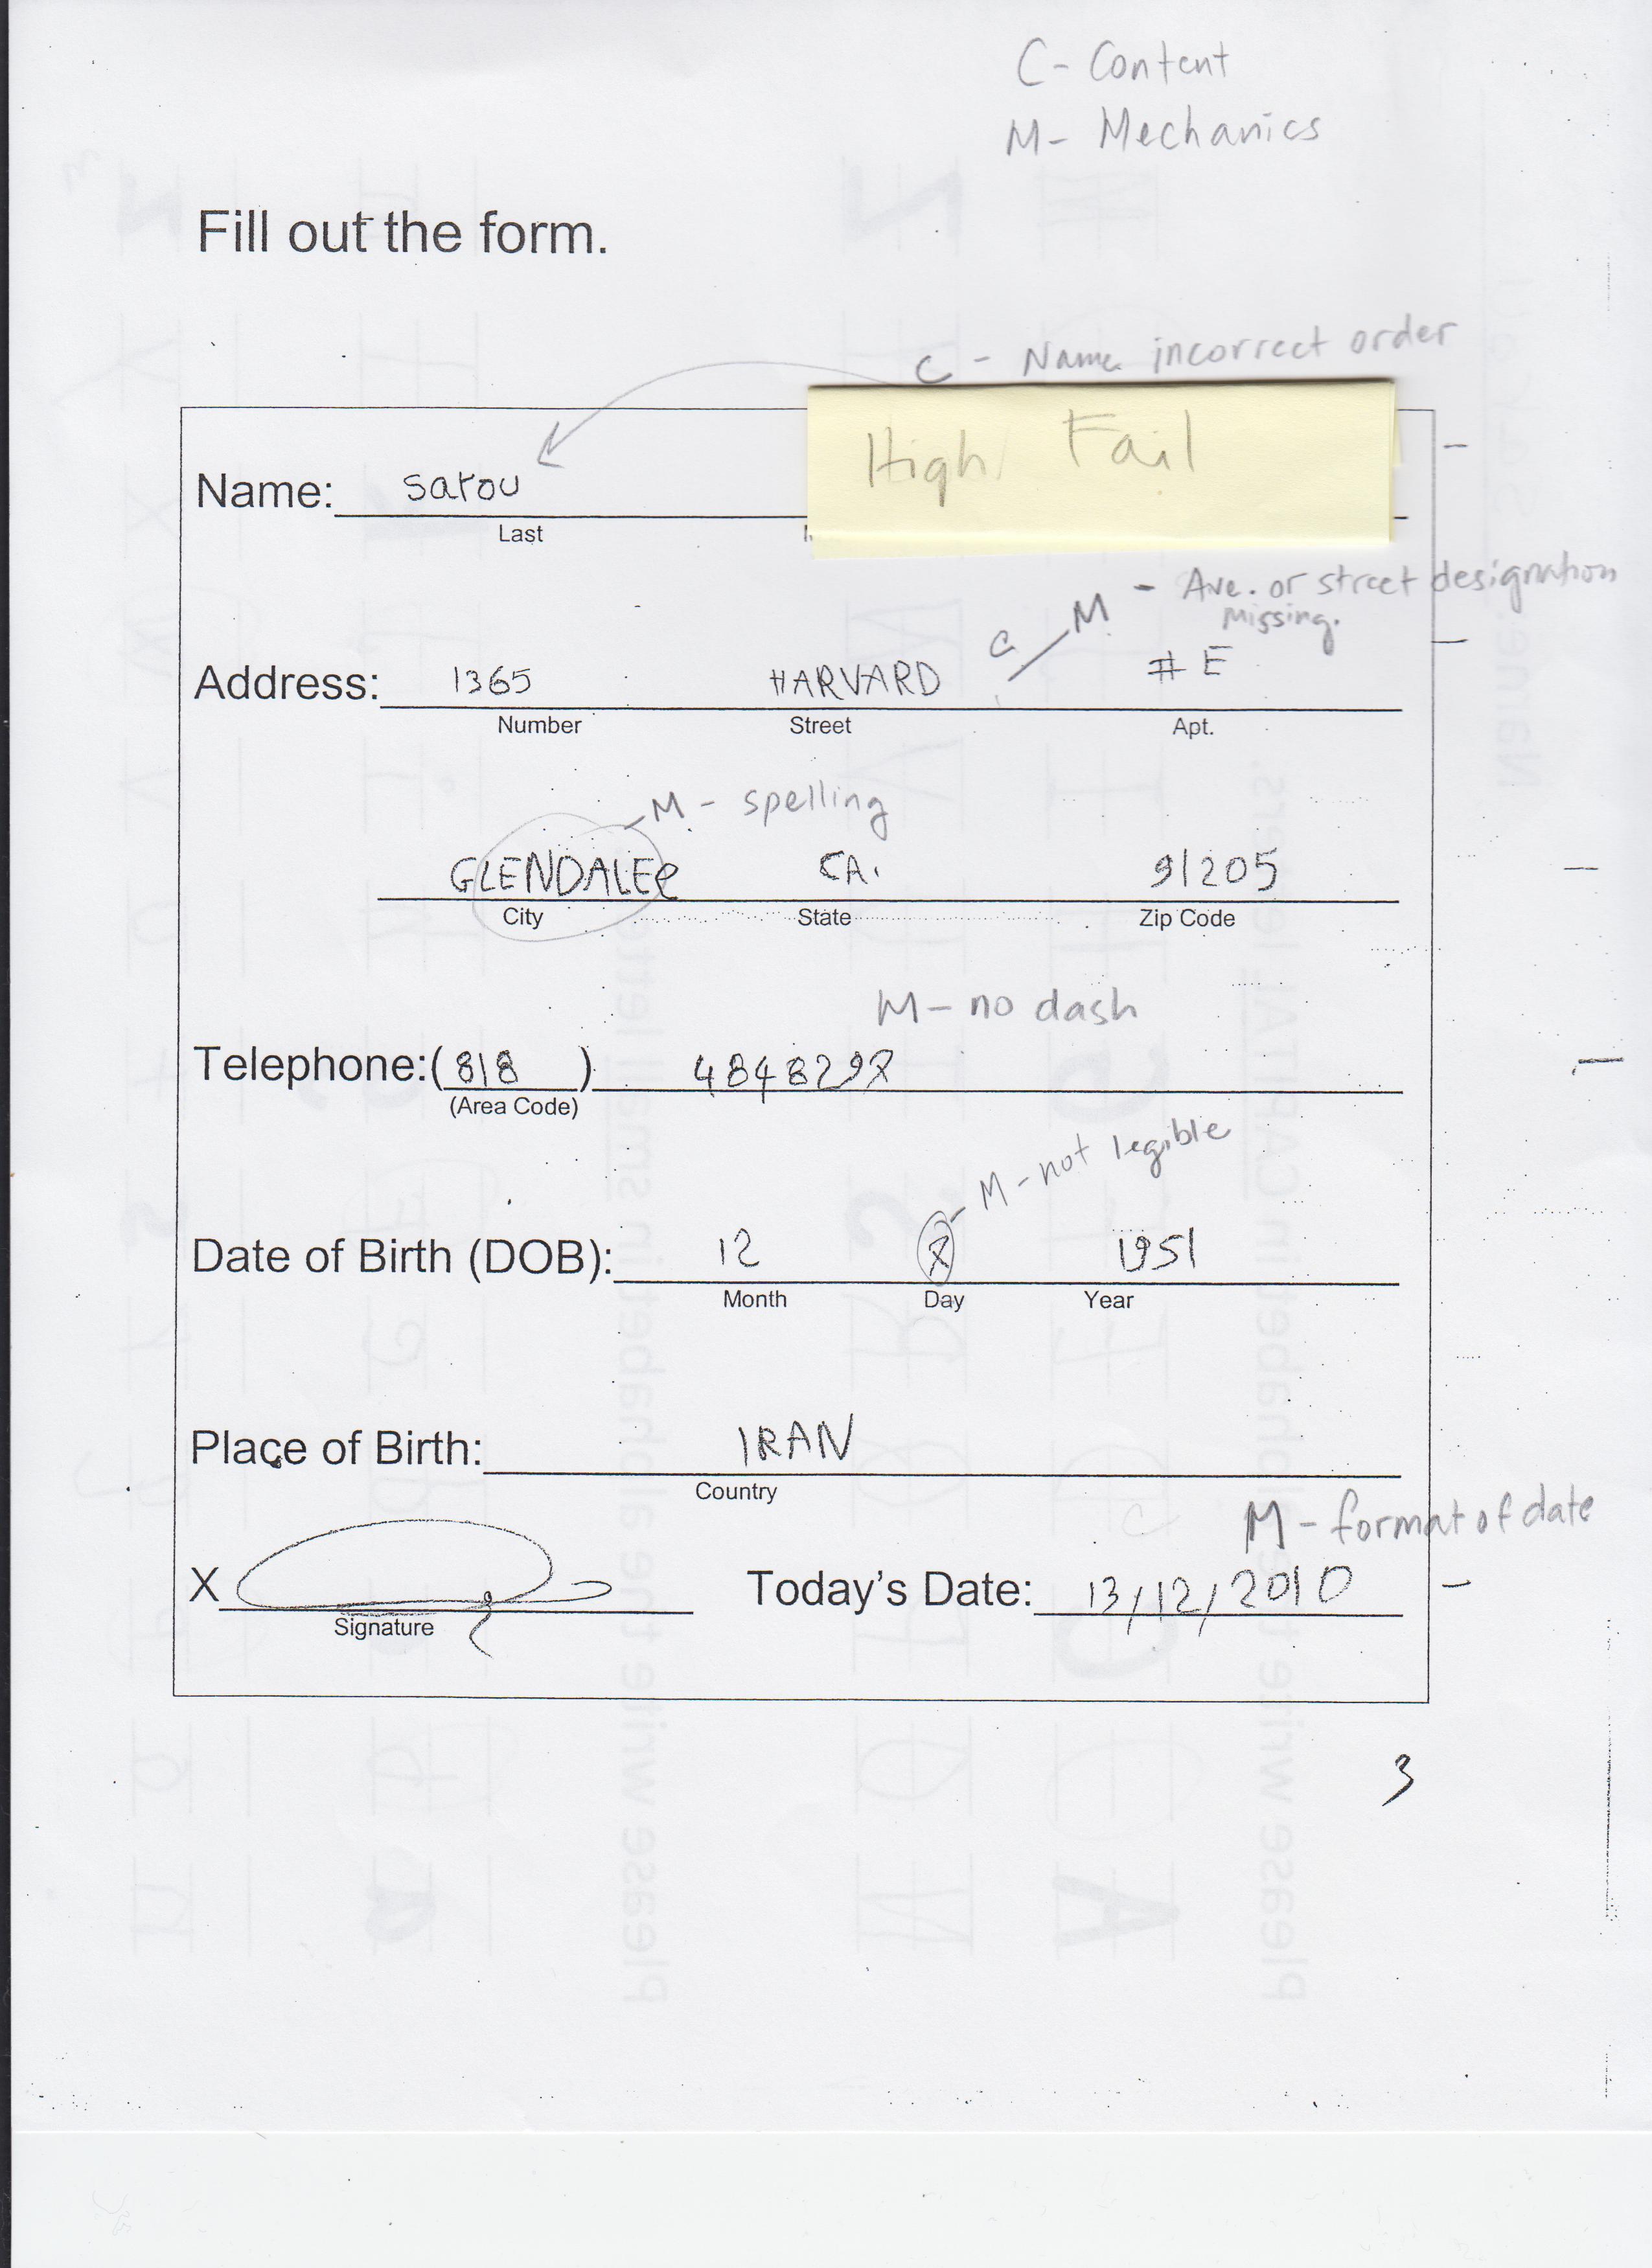 C - Content
M - Mechanics
Fill out the form.
C - Name incorrect order
High Fail
Name: sarou
Last
M - Ave. or street designation
missing.
C
Address: 1365 HARVARD # E
Number Street Apt.
M - spelling
GLENDALEe CA. 91205
City State Zip Code
M - no dash
Telephone: (818) 484829
(Area Code)
M - not legible
Date of Birth (DOB): 12 1951
Month Day Year
Place of Birth: IRAN
Country
C M - format of date
X Today's Date: 13/12/2010
Signature
3